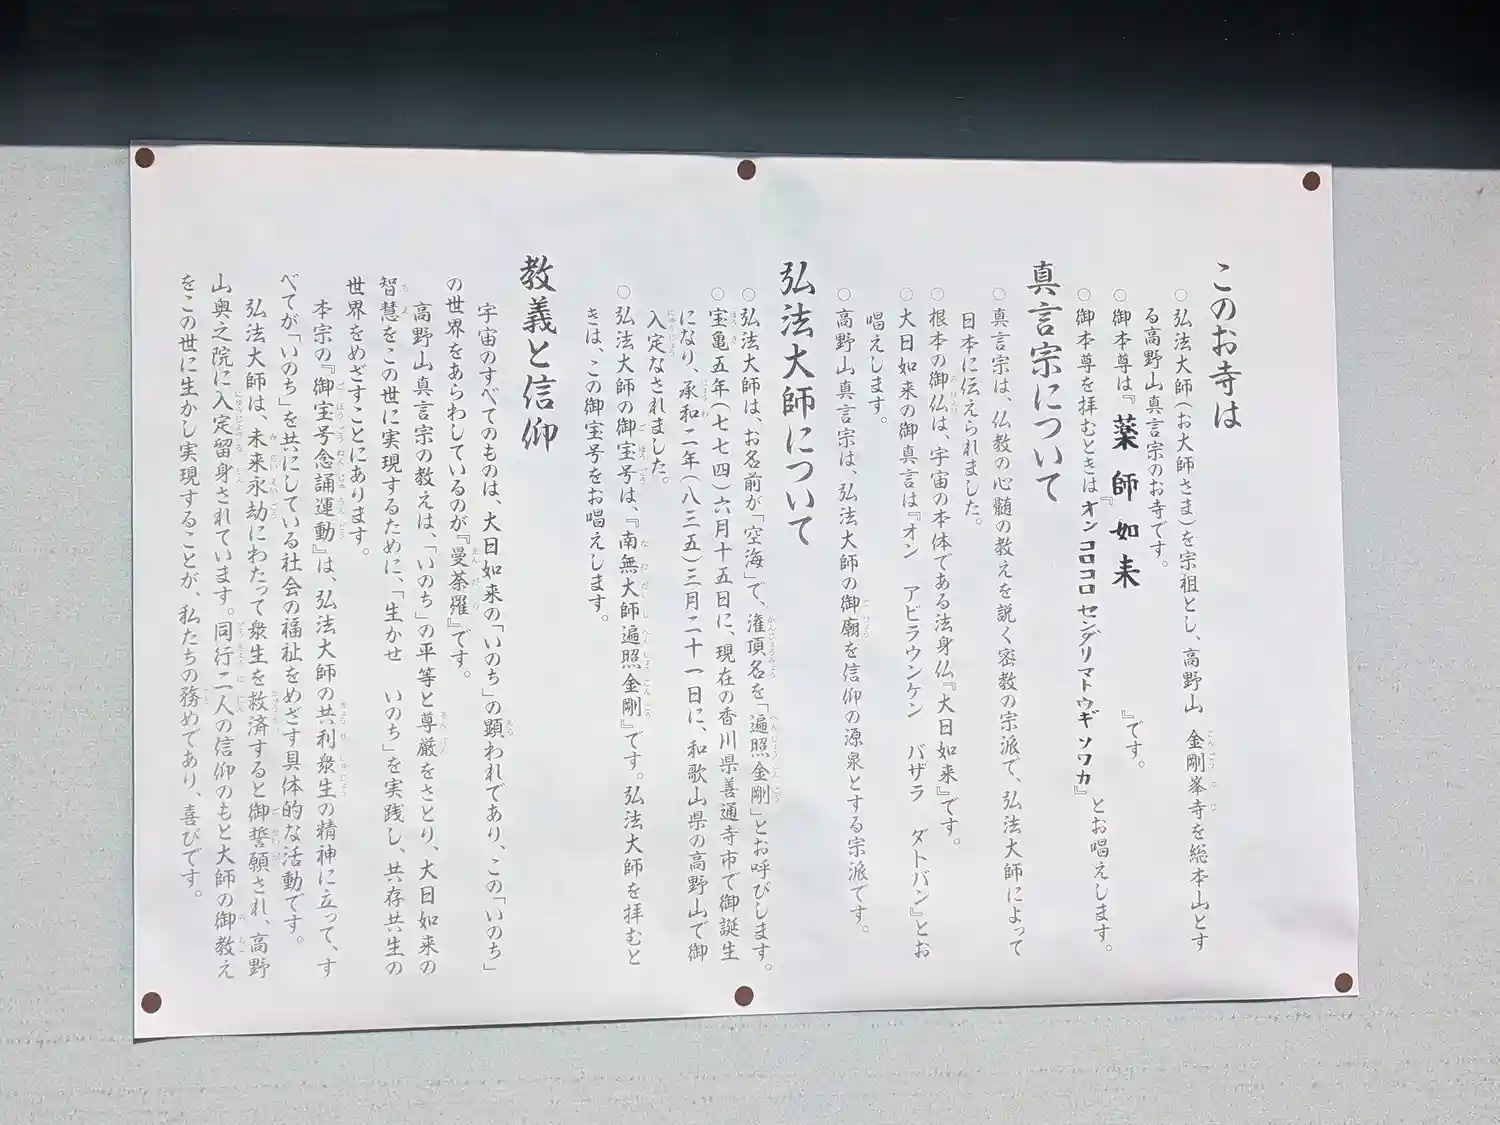 このお寺は
○弘法大師(お大師さま)を宗祖とし、高野山 金剛峯寺を総本山とす
る高野山真言宗のお寺です。
○御本尊は『薬師如来』です。
○御本尊を拝むときは『オン コロコロ センダリ マトウギ ソワカ』とお唱えします。
真言宗について
○真言宗は、仏教の心髄の教えを説く密教の宗派で、弘法大師によって
日本に伝えられました。
○根本の御仏は、宇宙の本体である法身仏『大日如来』です。
○大日如来の御真言は『オン アビラウンケン バザラ ダトバン』とお
唱えします。
○高野山真言宗は、弘法大師の御廟を信仰の源泉とする宗派です。
弘法大師について
○弘法大師は、お名前が「空海」で、潅頂名を「遍照金剛」とお呼びします。
○宝亀五年(七七四)六月十五日に、現在の香川県善通寺市で御誕生
になり、承和二年(八三五)三月二十一日に、和歌山県の高野山で御
入定なされました。
○弘法大師の御宝号は、『南無大師遍照金剛』です。弘法大師を拝むと
きは、この御宝号をお唱えします。
教義と信仰
宇宙のすべてのものは、大日如来の「いのち」の顕われであり、この「いのち」
の世界をあらわしているのが『曼荼羅』です。
高野山真言宗の教えは、「いのち」の平等と尊厳をさとり、大日如来の
智慧をこの世に実現するために、「生かせ いのち」を実践し、共存共生の
世界をめざすことにあります。
本宗の『御宝号念誦運動』は、弘法大師の共利衆生の精神に立って、す
べてが「いのち」を共にしている社会の福祉をめざす具体的な活動です。
弘法大師は、未来永劫にわたって衆生を救済すると御誓願され、高野
山奥之院に入定留身されています。同行二人の信仰のもと大師の御教え
をこの世に生かし実現することが、私たちの務めであり、喜びです。